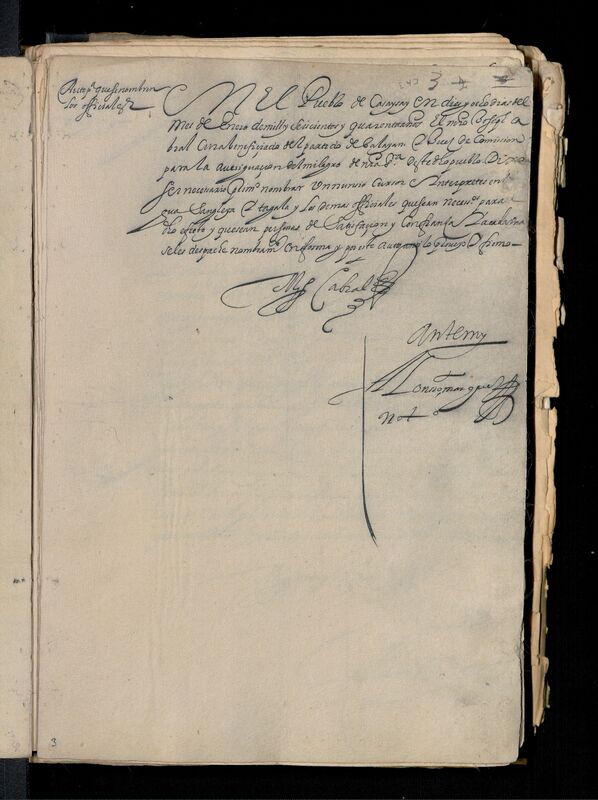 3
Auto pa. que se nombren
los officiales
En El Pueblo de Casaysay en dies y ocho dias del
Mes de Enero de mill y seiscientos y quarenta años El mro. Bor
bral Cura beneficiado del partido de Balayan Juez de Comission
para la aueriguacion del milagro de nra. sa. deste dho pueblo Dixo
ser necesario primo. nombrar Un nuncio Cursor Interpretes en len
gua Sangleya Tagala y los demas officiales que sean necesos. para
dho efeto y que sean personas de Satisfaçion y Confiansa
seles despache nombramto. en forma y por este auto ansi lo proueyo firmo
Mo. Cabral
Ante my
Alonso
Noto.
3